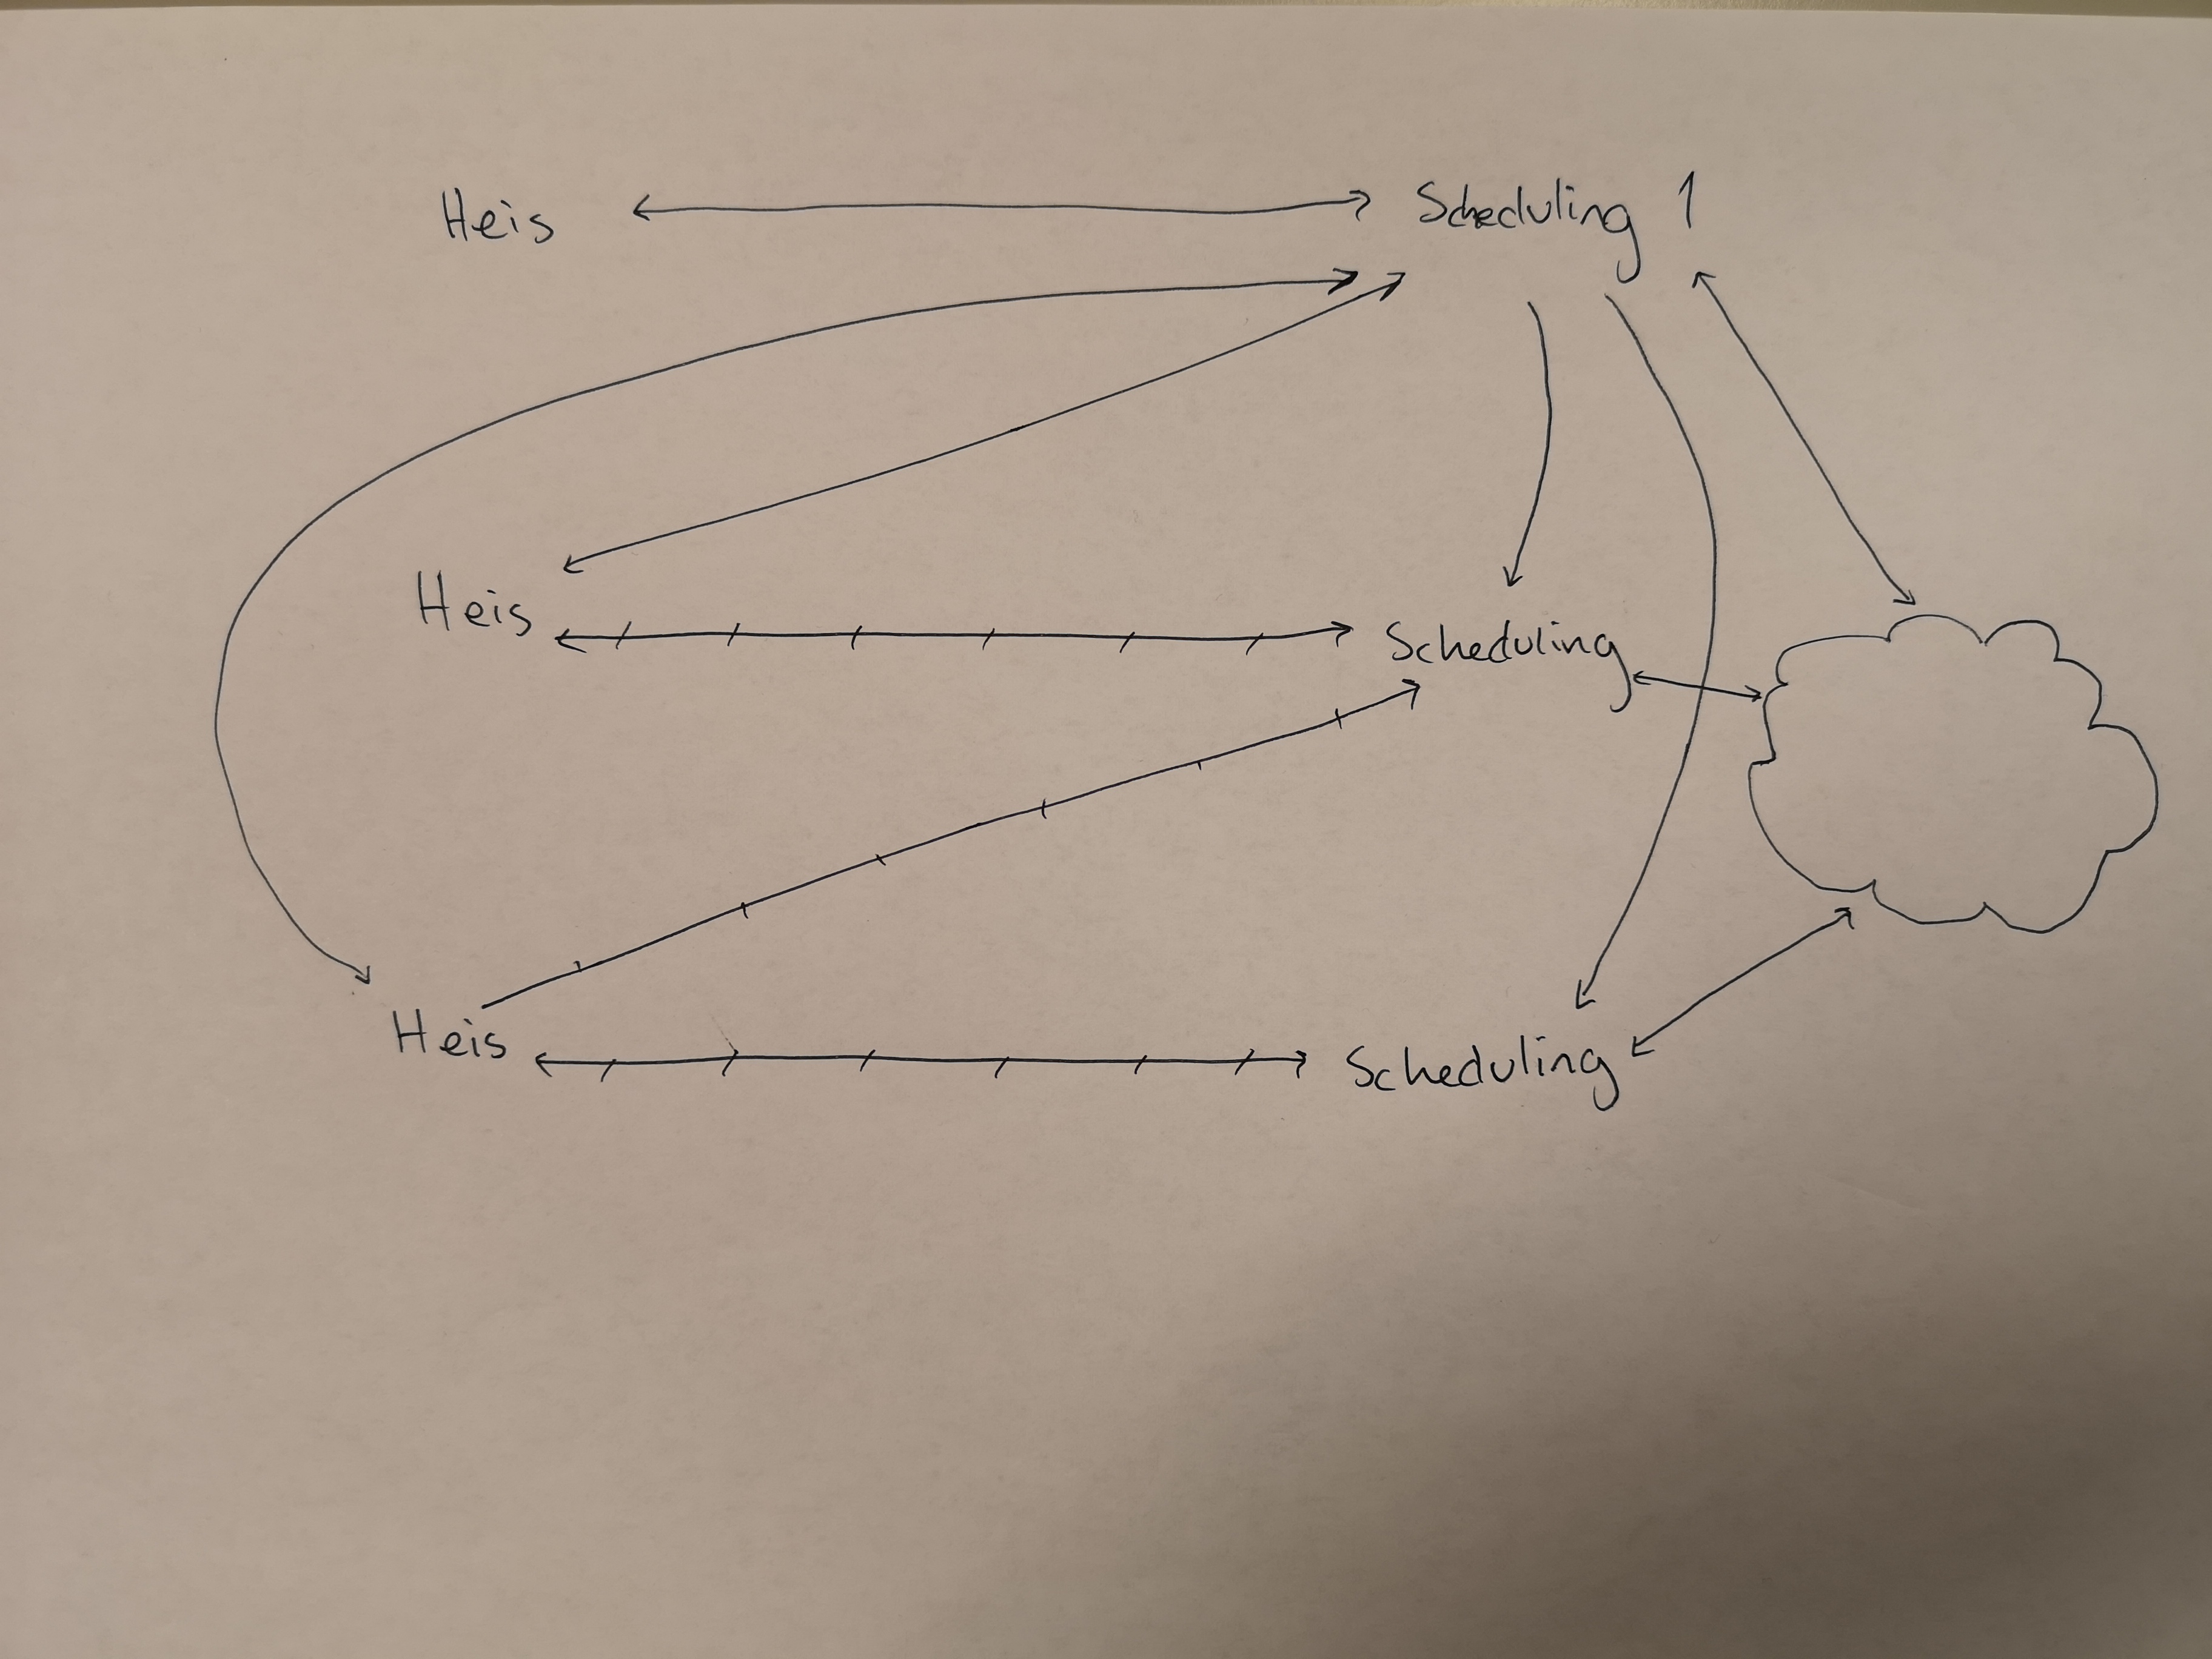 Heis Scheduling 1
Heis Scheduling
Heis Scheduling